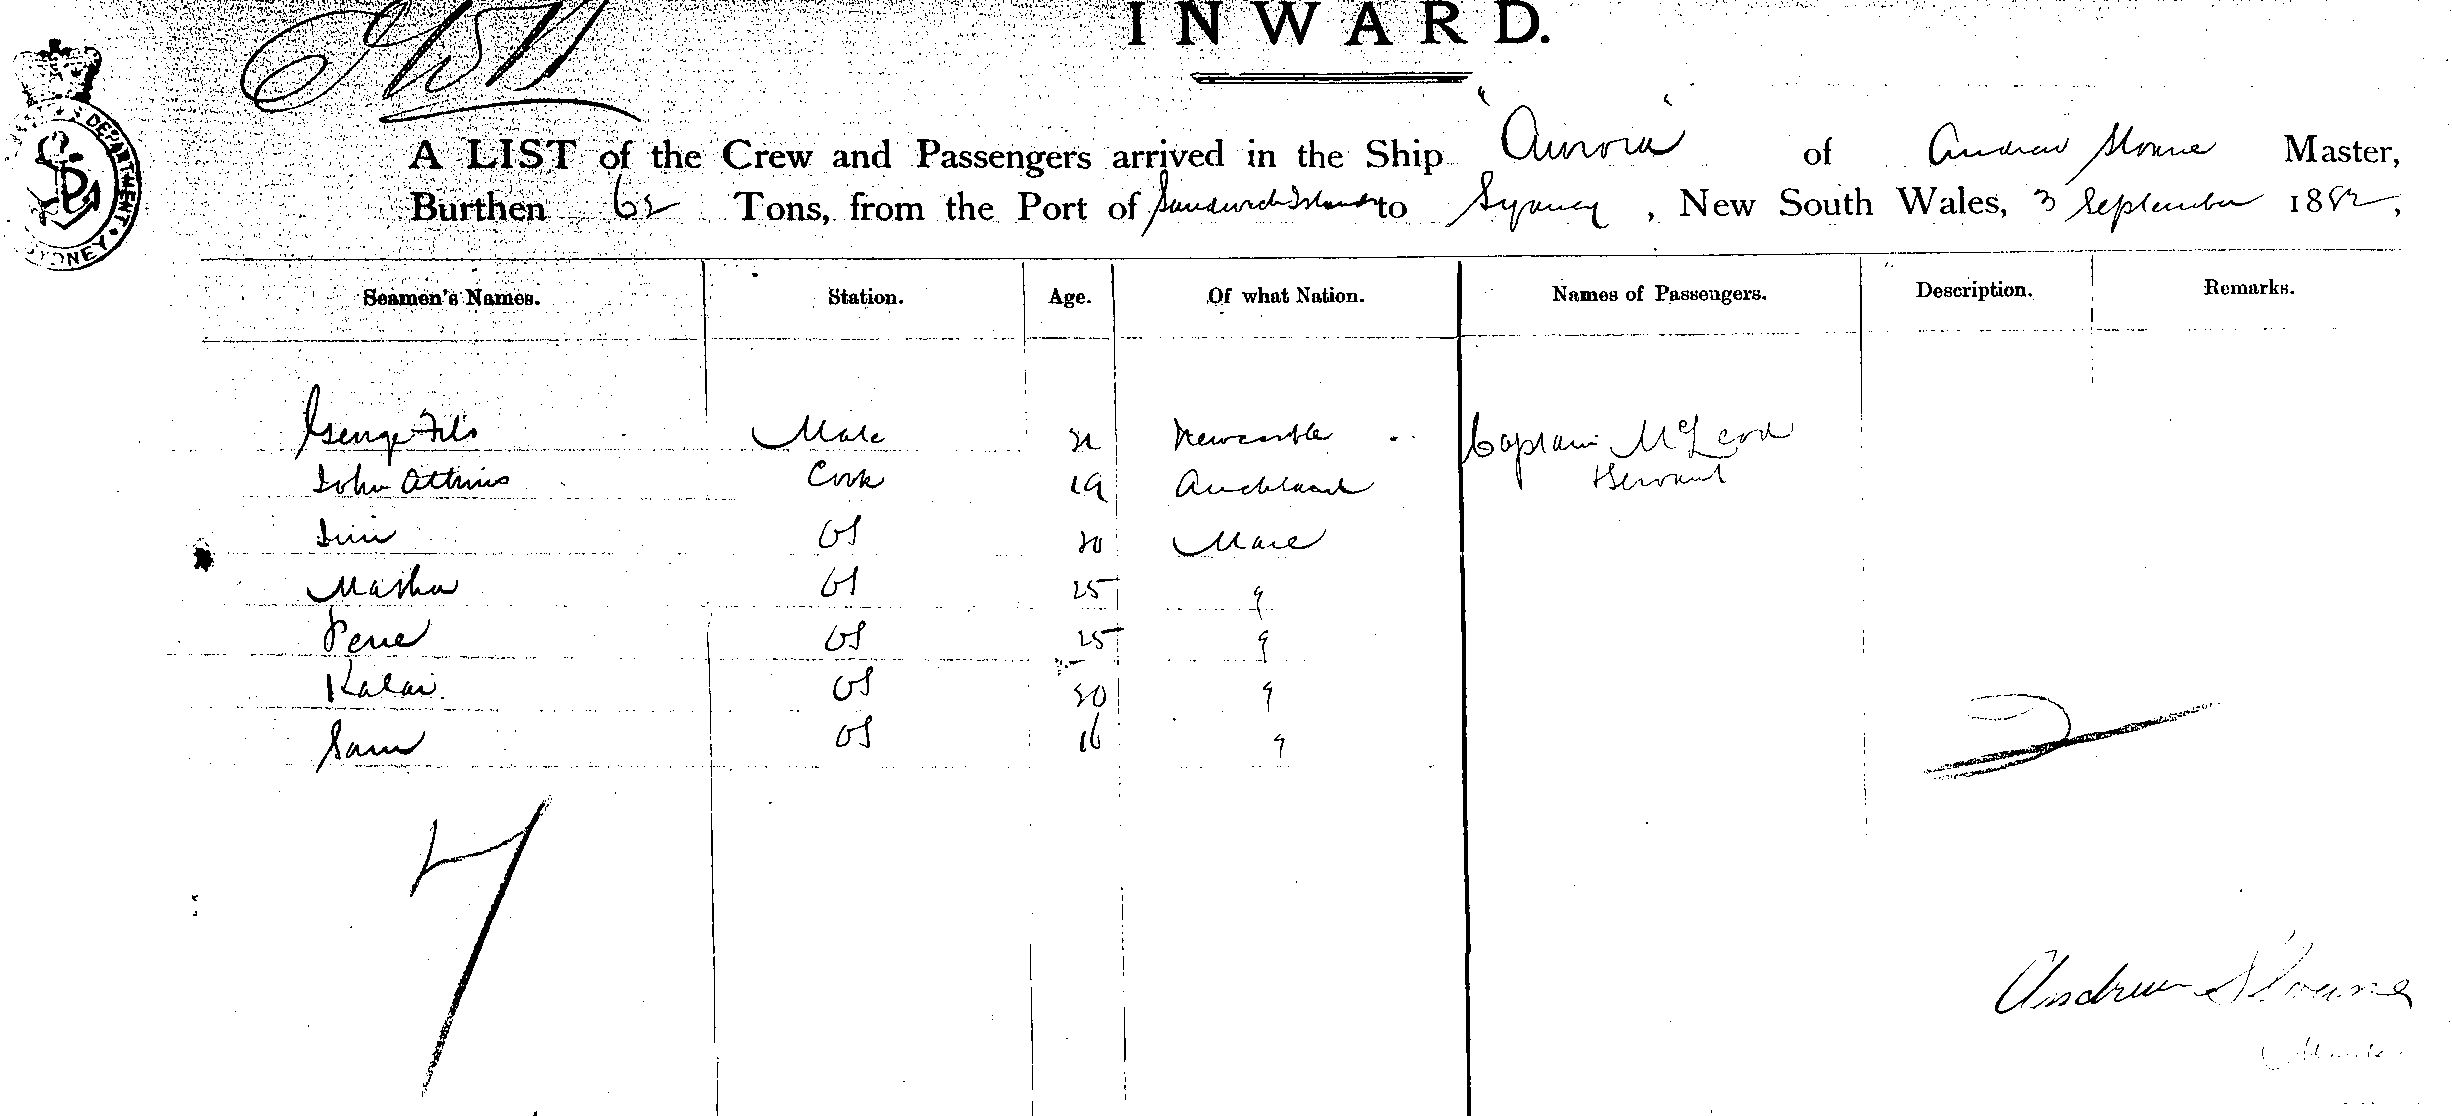 INWARD.
DEPARTMENT SYDNEY
A LIST of the Crew and Passengers arrived in the Ship "Aurora" of Andrew Sloane Master,
Burthen 62 Tons, from the Port of Sandwich Islands to Sydney, New South Wales, 3 September 1882,
Seamen's Names. Station. Age. Of what Nation. Names of Passengers. Description. Remarks.
George Mate Newcastle Captain McLeod
John Atkins Cook 19 Auckland Servant
Jim OS Mare
OS 25 "
OS 25 "
Kalai OS "
Sam OS 16 "
2
7
Andrew Sloane
Master